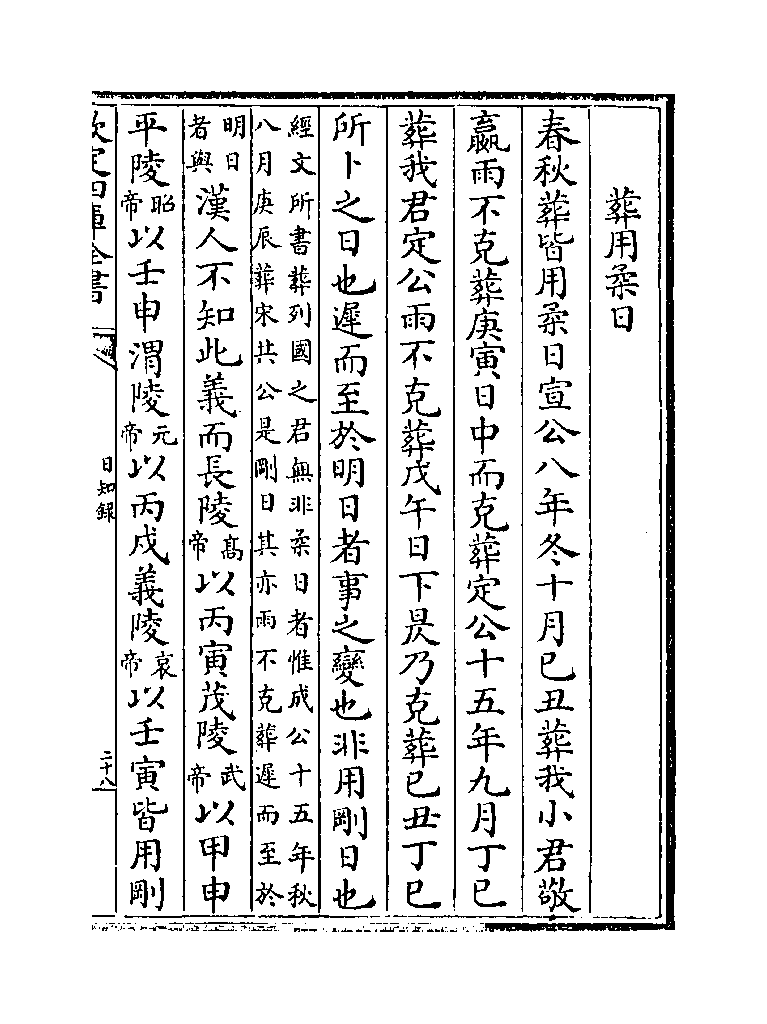 葬用柔日
春秋葬皆用柔日宣公八年冬十月己丑葬我小君敬
嬴雨不克葬庚寅日中而克葬定公十五年九月丁巳
葬我君定公雨不克葬戊午日下昃乃克葬己丑丁巳
所卜之日也遲而至於明日者事之變也非用剛日也
經文所書葬列國之君無非柔日者惟成公十五年秋
八月庚辰葬宋共公是剛日其亦雨不克葬遲而至於
明日者與漢人不知此義而長陵高帝以丙寅茂陵武帝以甲申
平陵昭帝以壬申渭陵元帝以丙戌義陵哀帝以壬寅皆用剛
欽定四庫全書
日知錄
二十八